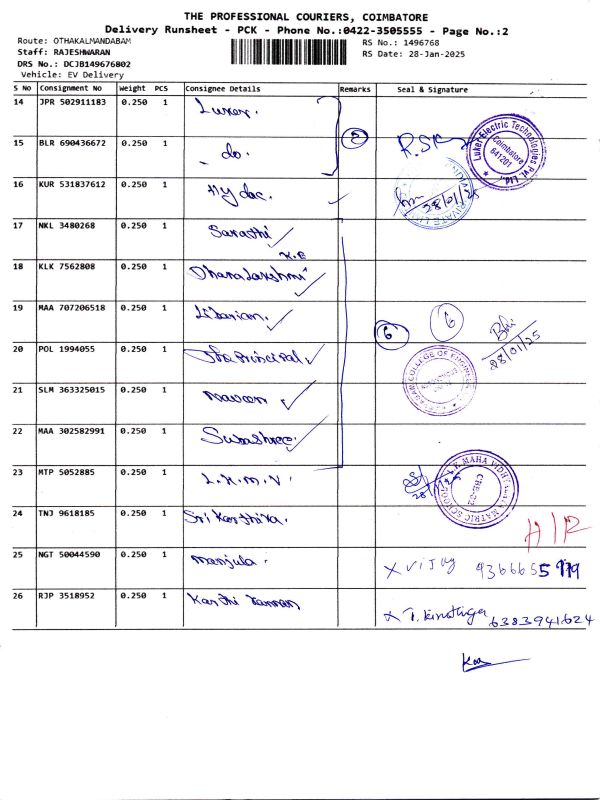 THE PROFESSIONAL COURIERS, COIMBATORE
Delivery Runsheet - PCK - Phone No.:0422-3505555 - Page No.:2
Route: OTHAKALMANDABAM
RS No.: 1496768
Staff: RAJESHWARAN
RS Date: 28-Jan-2025
DRS No.: DCJB149676802
Vehicle: EV Delivery
S No Consignment No Weight PCS Consignee Details Remarks Seal & Signature
14 JPR 502911183 0.250 1 Luker.
15 BLR 690436672 0.250 1 - do.
Luker Electric Technologies Pvt. Ltd.
Coimbatore
641201
16 KUR 531837612 0.250 1
28/01/25
17 NKL 3480268 0.250 1 Sarasthi
K.E
18 KLK 7562808 0.250 1 Dhanalakshmi
19 MAA 707206518 0.250 1 Librarian.
6 6
28/01/25
20 POL 1994055 0.250 1 The Principal
COLLEGE OF ENGINEE
21 SLM 363325015 0.250 1 Naveen
22 MAA 302582991 0.250 1
23 MTP 5052885 0.250 1 L.K.M.V.
MAHA VIDH
MATRIC SCHOOL
CBE-02
24 TNJ 9618185 0.250 1 Sri Karthika.
25 NGT 50044590 0.250 1 Manjula.
X Vijay
26 RJP 3518952 0.250 1
X 6383941624